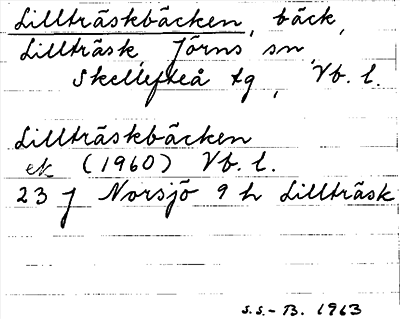 Lillträskbäcken, bäck,
Lillträsk, Jörns sn,
Skellefteå tg, Vb. l.
Lillträskbäcken
ek (1960) Vb. l.
23 J Norsjö 9 h Lillträsk
S.S.-B. 1963